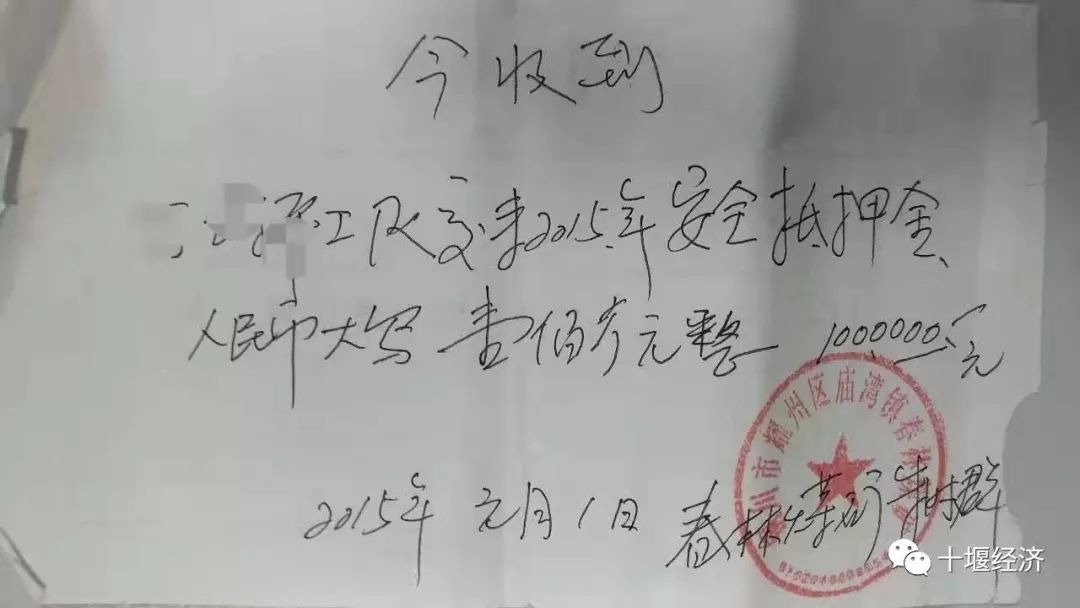 今收到
工队交来2015年安全抵押金
人民币大写 壹佰万元整 1000000元
2015年 元月1日 春林煤矿
川市耀州区庙湾镇春林煤矿
十堰经济